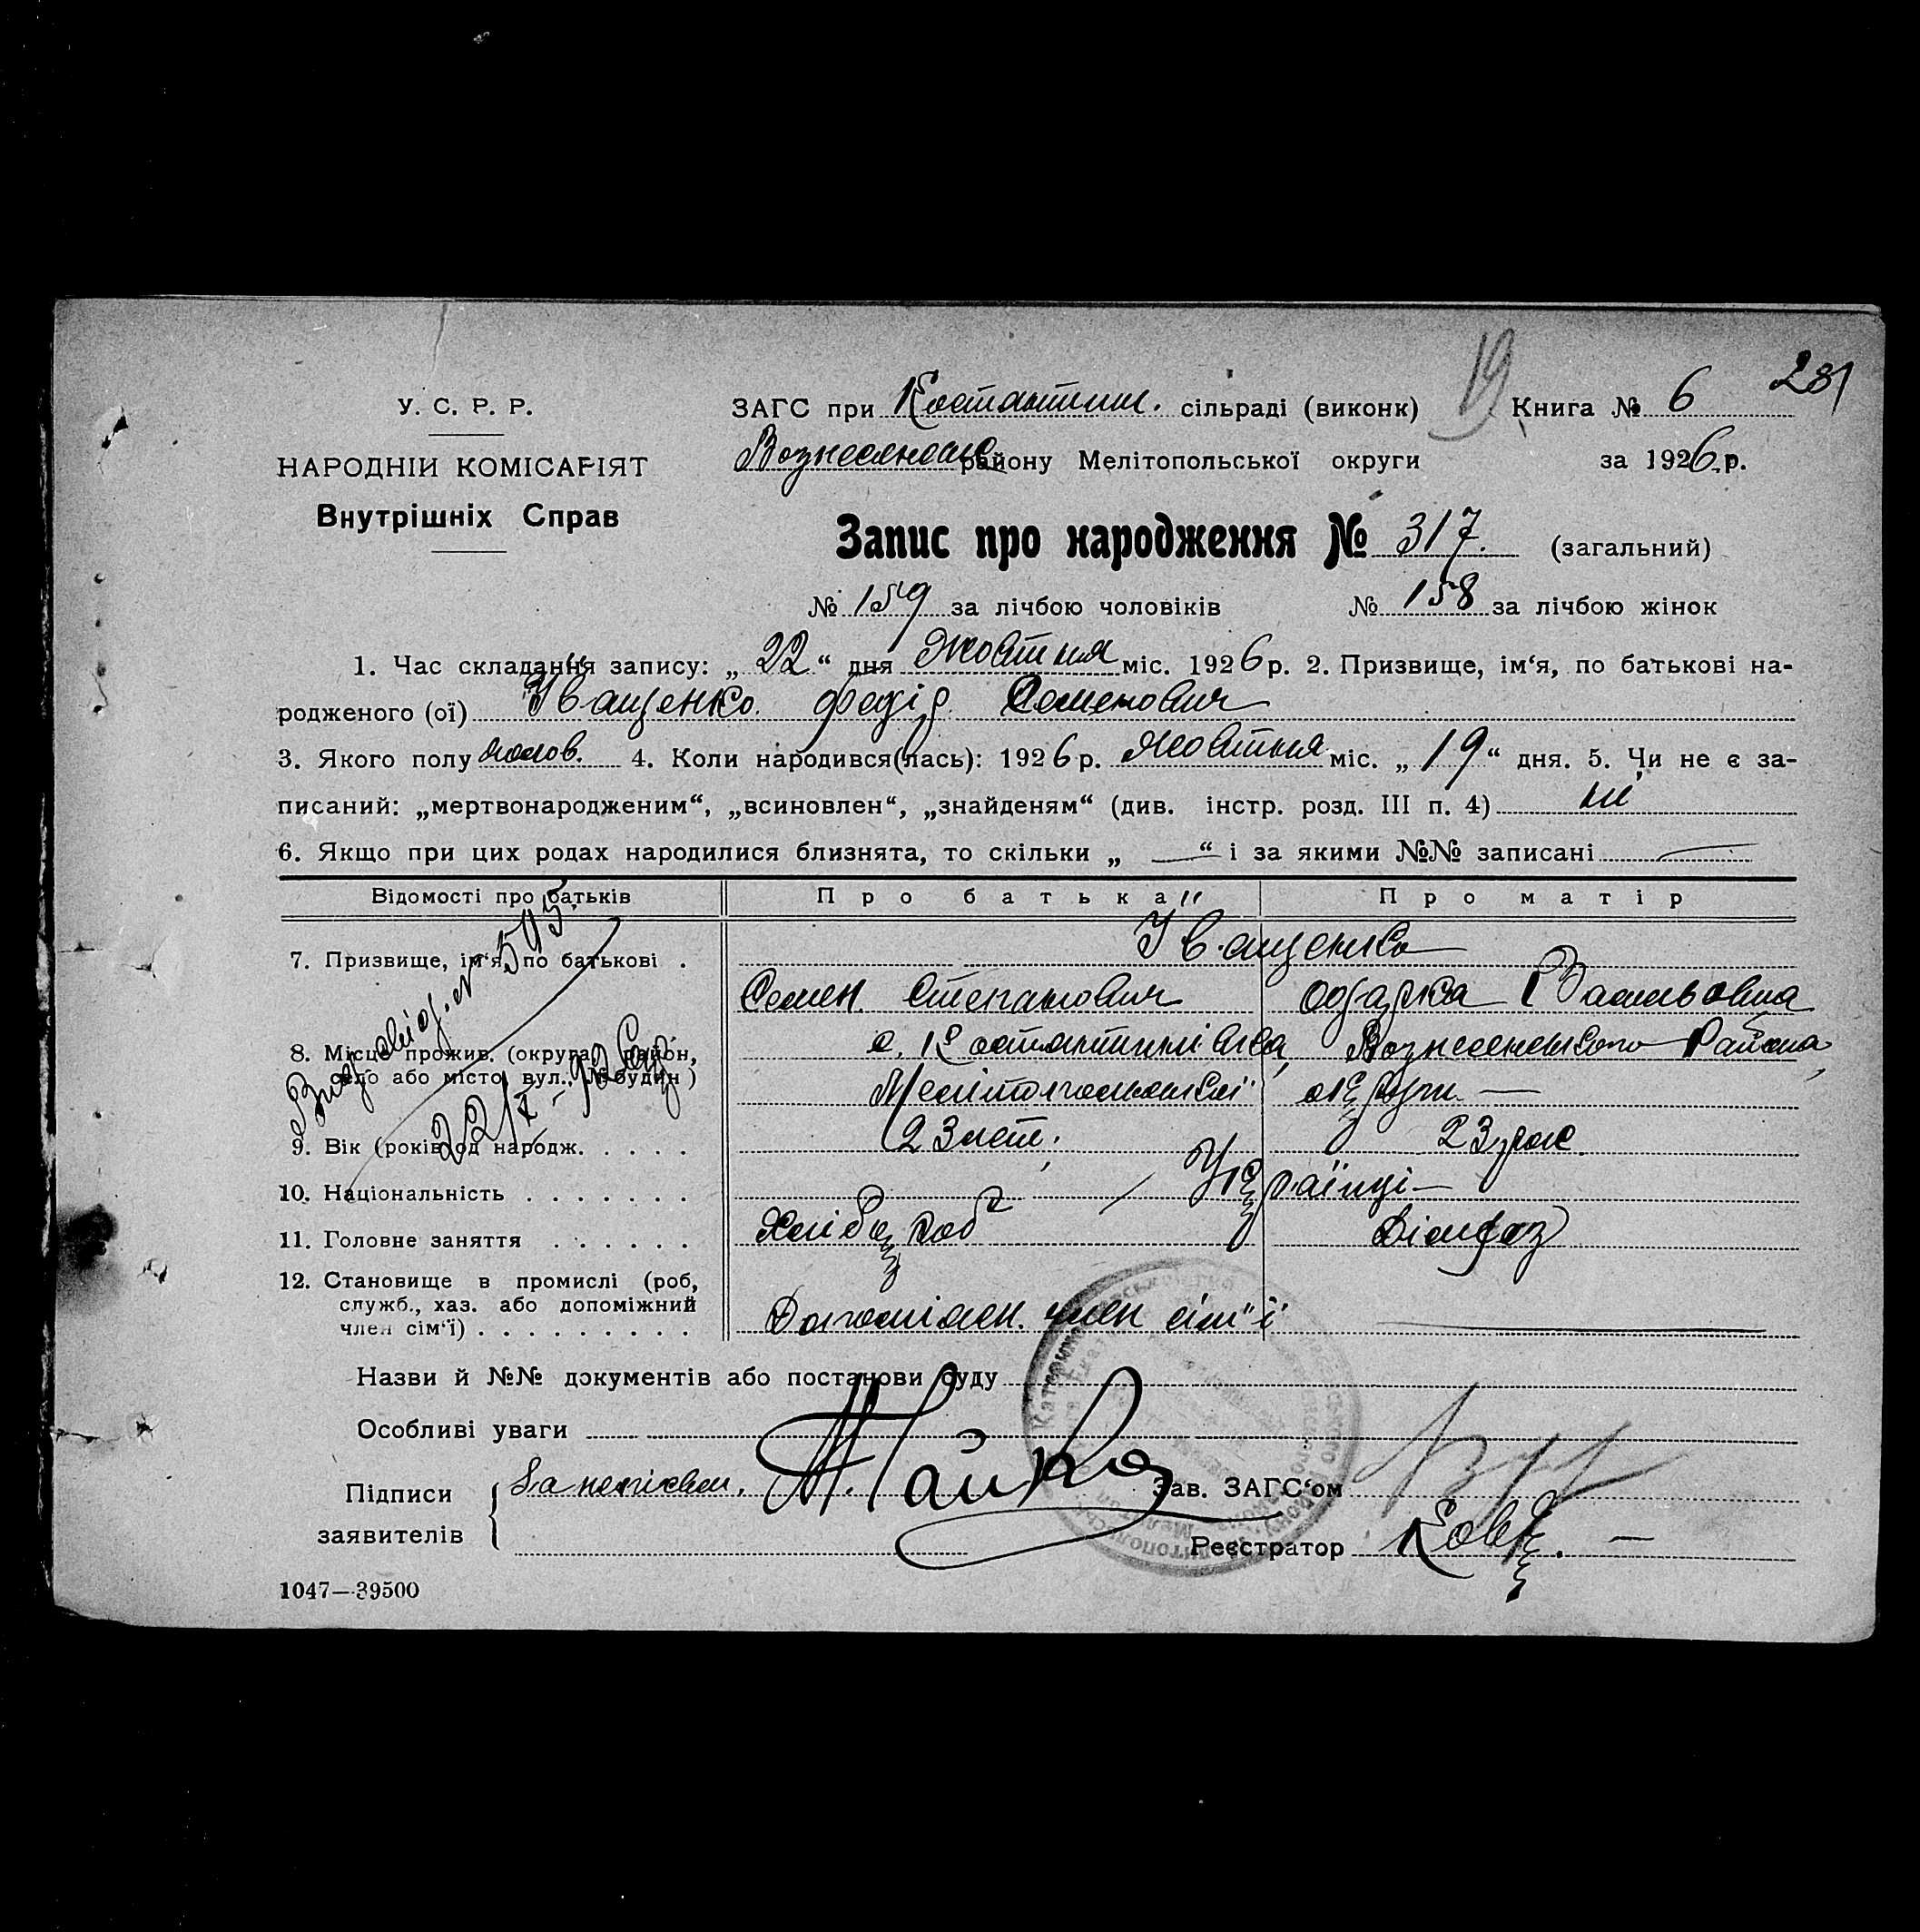 19
281
У. С. Р. Р.
ЗАГС при Костантин. сільраді (виконк) Книга № 6
НАРОДНІЙ КОМІСАРІЯТ
Вознесенськ району Мелітопольської округи за 1926 р.
Внутрішніх Справ
Запис про народження № 317. (загальний)
№ 159 за лічбою чоловіків № 158 за лічбою жінок
1. Час складання запису: „ 22 “ дня Жовтня міс. 1926 р. 2. Призвище, ім‘я, по батькові на-
родженого (ої) Іващенко. Федір Семенович
3. Якого полу чолов. 4. Коли народився(лась): 1926 р. Жовтня міс. „ 19 “ дня. 5. Чи не є за-
писаний: „мертвонародженим“, „всиновлен“, „знайденям“ (див. інстр. розд. III п. 4) ні
6. Якщо при цих родах народилися близнята, то скільки „ — “ і за якими №№ записані —
Відомості про батьків Про батька Про матір
7. Призвище, ім‘я, по батькові . Іващенко
Семен. Степанович Одарка Васильовна
8. Місце прожив. (округа, район, с. Костантинівка, Вознесенського Района,
село або місто, вул., № будин) Мелітопольської округи —
9. Вік (років од народж. . . . . 23 лет. 23 рок.
10. Національність . . . . . . . Українці —
11. Головне заняття . . . . . . Хлібороб Домгоз
12. Становище в промислі (роб,
служб., хаз. або допоміжний
член сім‘ї) . . . . . . . . . Допоміжн. член сім"ї —
Видо свід. № 595.
22/X-926 р
Назви й №№ документів або постанови суду
Особливі уваги
Підписи
заявителів
Зав. ЗАГС‘ом
Реєстратор
1047—39500